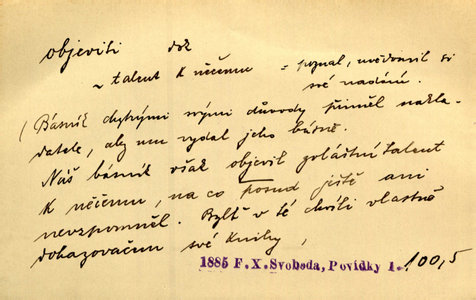 objeviti dok
~ talent k něčemu = poznal, uvědomil si
své nadání.
(Básník chytrými svými důvody přiměl nakla-
datele, aby mu vydal jeho básně.
Náš básník však objevil zvláštní talent
k něčemu, na co posud ještě ani
nevzpomněl. Bylť v té chvíli vlastně
dohazovačem své knihy,
1885 F. X. Svoboda, Povídky 1. 100,5